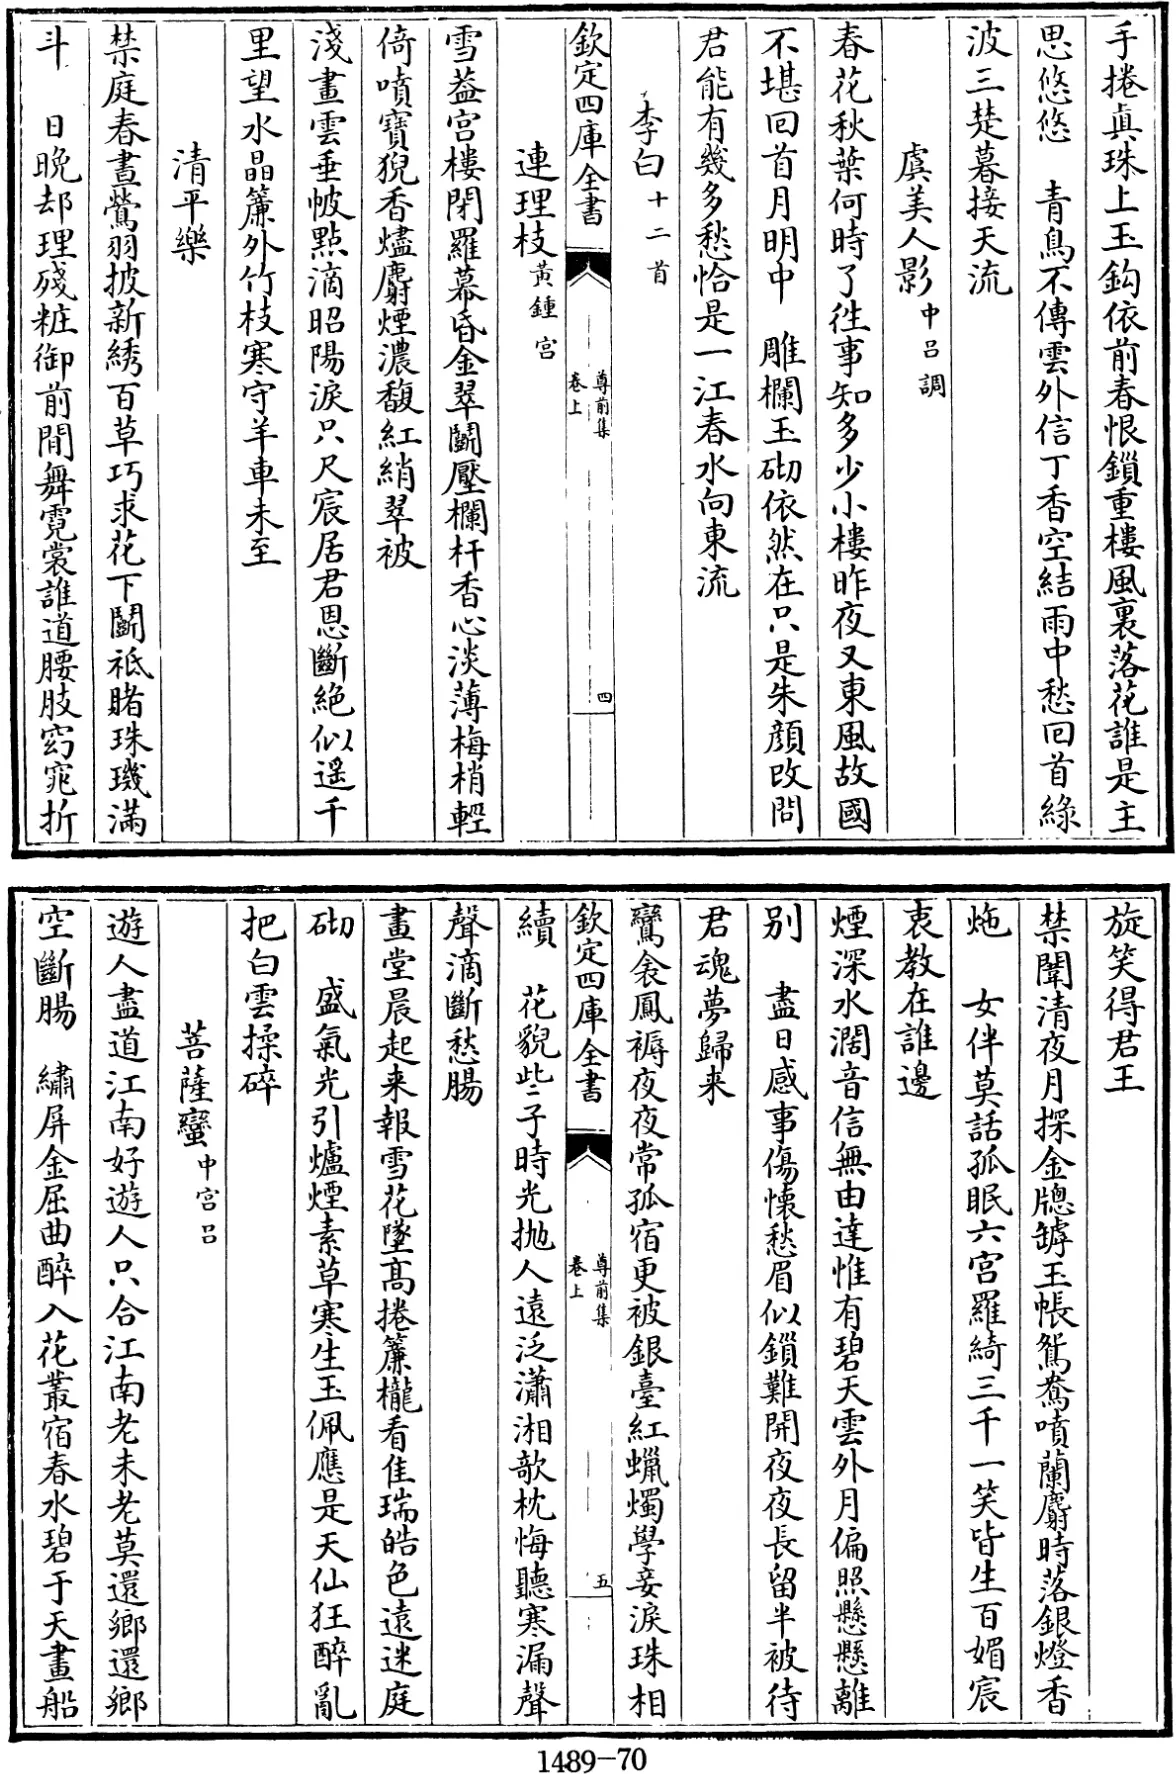 手捲真珠上玉鈎依前春恨鎖重樓風裏落花誰是主
思悠悠　青鳥不傳雲外信丁香空結雨中愁回首綠
波三楚暮接天流
虞美人影中呂調
春花秋葉何時了徃事知多少小樓昨夜又東風故國
不堪回首月明中　雕欄玉砌依然在只是朱顔改問
君能有幾多愁恰是一江春水向東流
李白十二首
欽定四庫全書
尊前集
卷上
四
連理枝黃鍾宮
雪蓋宮樓閉羅幕昏金翠鬭壓欄杆香心淡薄梅梢輕
倚噴寶猊香燼麝煙濃馥紅綃翠被
淺畫雲垂帔點滴昭陽淚只尺宸居君恩斷絶似遥千
里望水晶簾外竹枝寒守羊車未至
清平樂
禁庭春晝鶯羽披新綉百草巧求花下鬭祗賭珠璣滿
斗　日晩却理殘粧御前閒舞霓裳誰道腰肢窈窕折
旋笑得君王
禁闈清夜月探金牕罅玉帳鴛鴦噴蘭麝時落銀燈香
灺　女伴莫話孤眠六宮羅綺三千一笑皆生百媚宸
衷教在誰邊
煙深水濶音信無由達惟有碧天雲外月偏照懸懸離
别　盡日感事傷懷愁眉似鎖難開夜夜長留半被待
君魂夢歸来
鸞衾鳳褥夜夜常孤宿更被銀臺紅蠟燭學妾淚珠相
欽定四庫全書
尊前集
卷上
五
續　花貌些子時光抛人遠泛瀟湘歌枕悔聽寒漏聲
聲滴斷愁腸
畫堂晨起来報雪花墜高捲簾櫳看佳瑞皓色遠迷庭
砌　盛氣光引爐煙素草寒生玉佩應是天仙狂醉亂
把白雲揉碎
菩薩蠻中宮呂
遊人盡道江南好遊人只合江南老未老莫還鄉還鄉
空斷腸　繡屏金屈曲醉入花叢宿春水碧于天畫船
1489-70